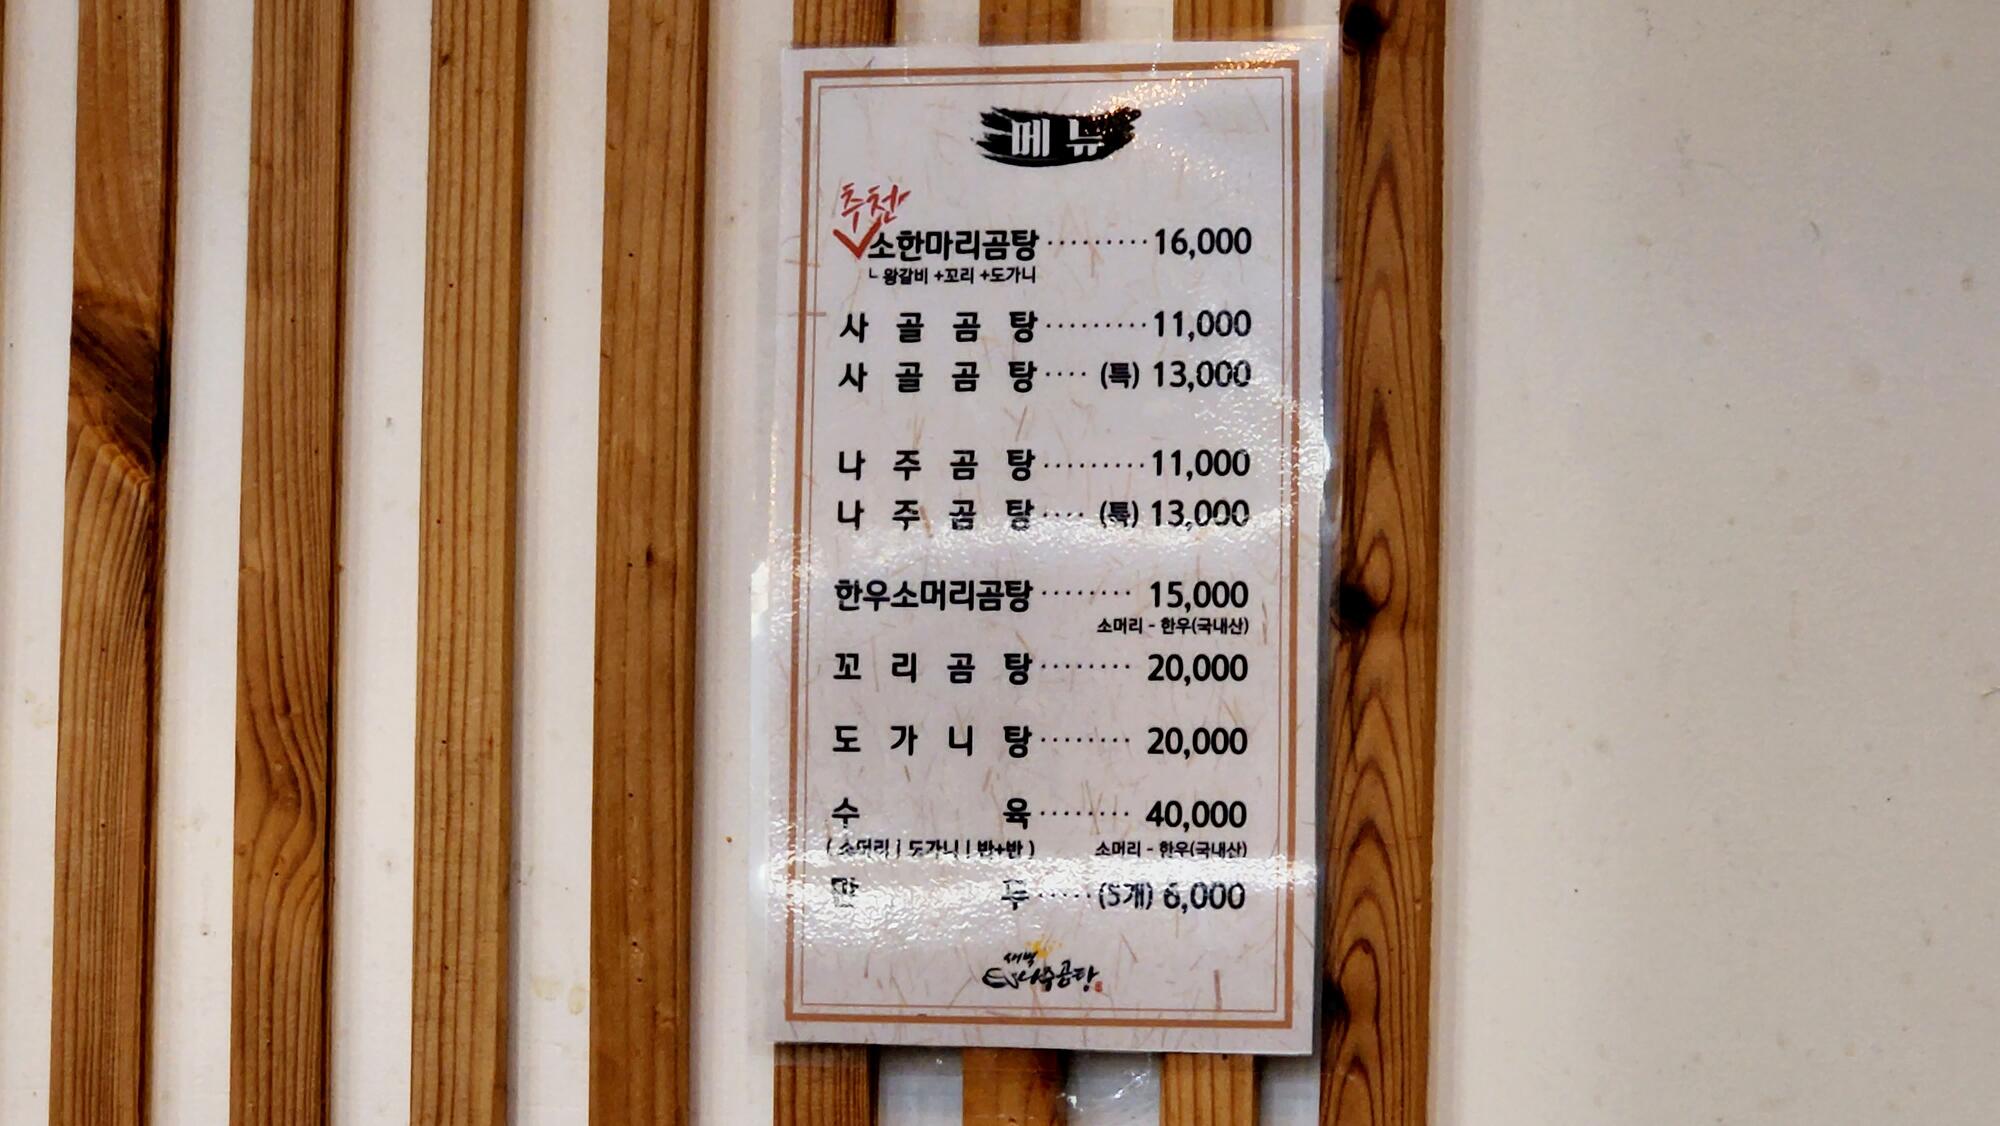 메뉴
추천
소한마리곰탕 ········· 16,000
ㄴ왕갈비 +꼬리 +도가니
사 골 곰 탕 ········· 11,000
사 골 곰 탕 ···· (특) 13,000
나 주 곰 탕 ········· 11,000
나 주 곰 탕 ···· (특) 13,000
한우소머리곰탕 ········ 15,000
소머리 - 한우(국내산)
꼬 리 곰 탕 ········ 20,000
도 가 니 탕 ········ 20,000
수 육 ········ 40,000
( 소머리 | 도가니 | 반+반 ) 소머리 - 한우(국내산)
만 두 ····· (5개) 6,000
새벽
나주곰탕